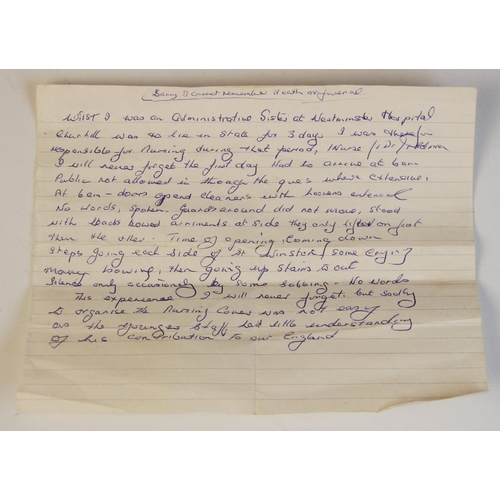 (Sorry I cannot remember death or funeral
Whilst I was an Administrative Sister at Westminster Hospital
Churchill was to lie in State for 3 days I was therefor
responsible for Nursing during that period, 1 Nurse / 1 Dr /
I will never forget the first day Had to arrive at 6am
Public not allowed in through the ques where extensive.
At 6am - doors opend cleaners with hoovers entered
No words, spoken. Guards around did not move, stood
with heads bowed arnments at side they only lifted on foot
then the other. Time of opening, Coming down
Steps going each side of St Winston (some crying)
many bowing, then going up stairs & out
Silence only occasionly by some sobbing - No words
This experience I will never forget. but sadly
to organise the Nursing Cover was not easy
as the younger staff had little understanding
of his contribution to our England